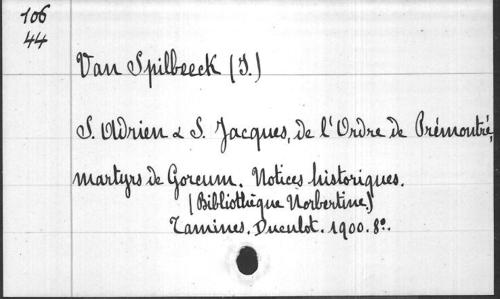 106
44
Van Spilbeeck (I.)
S. Adrien & S. Jacques, de l'Ordre de Prémontré,
martyrs de Gorcum. Notices historiques.
(Bibliothèque Norbertine)
Tamines. Duculot. 1900. 8º.